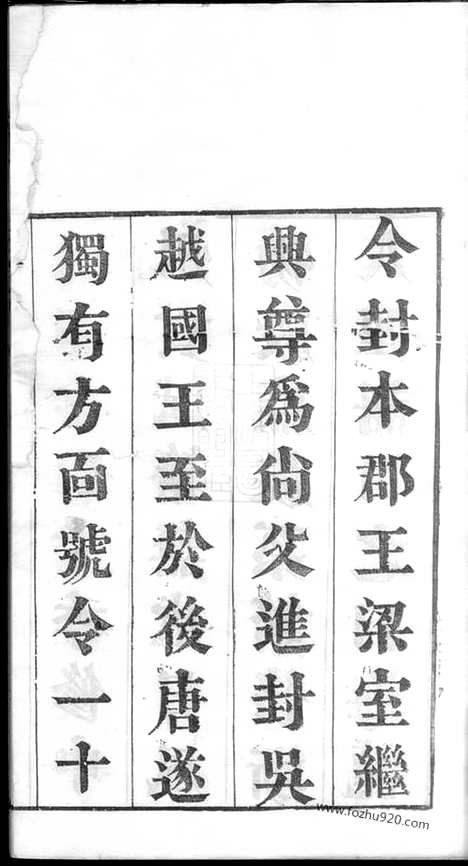 令封本郡王梁室繼
典尊爲尙父進封吳
越國王至於後唐遂
獨有方面號令一十
www.fozhu920.com